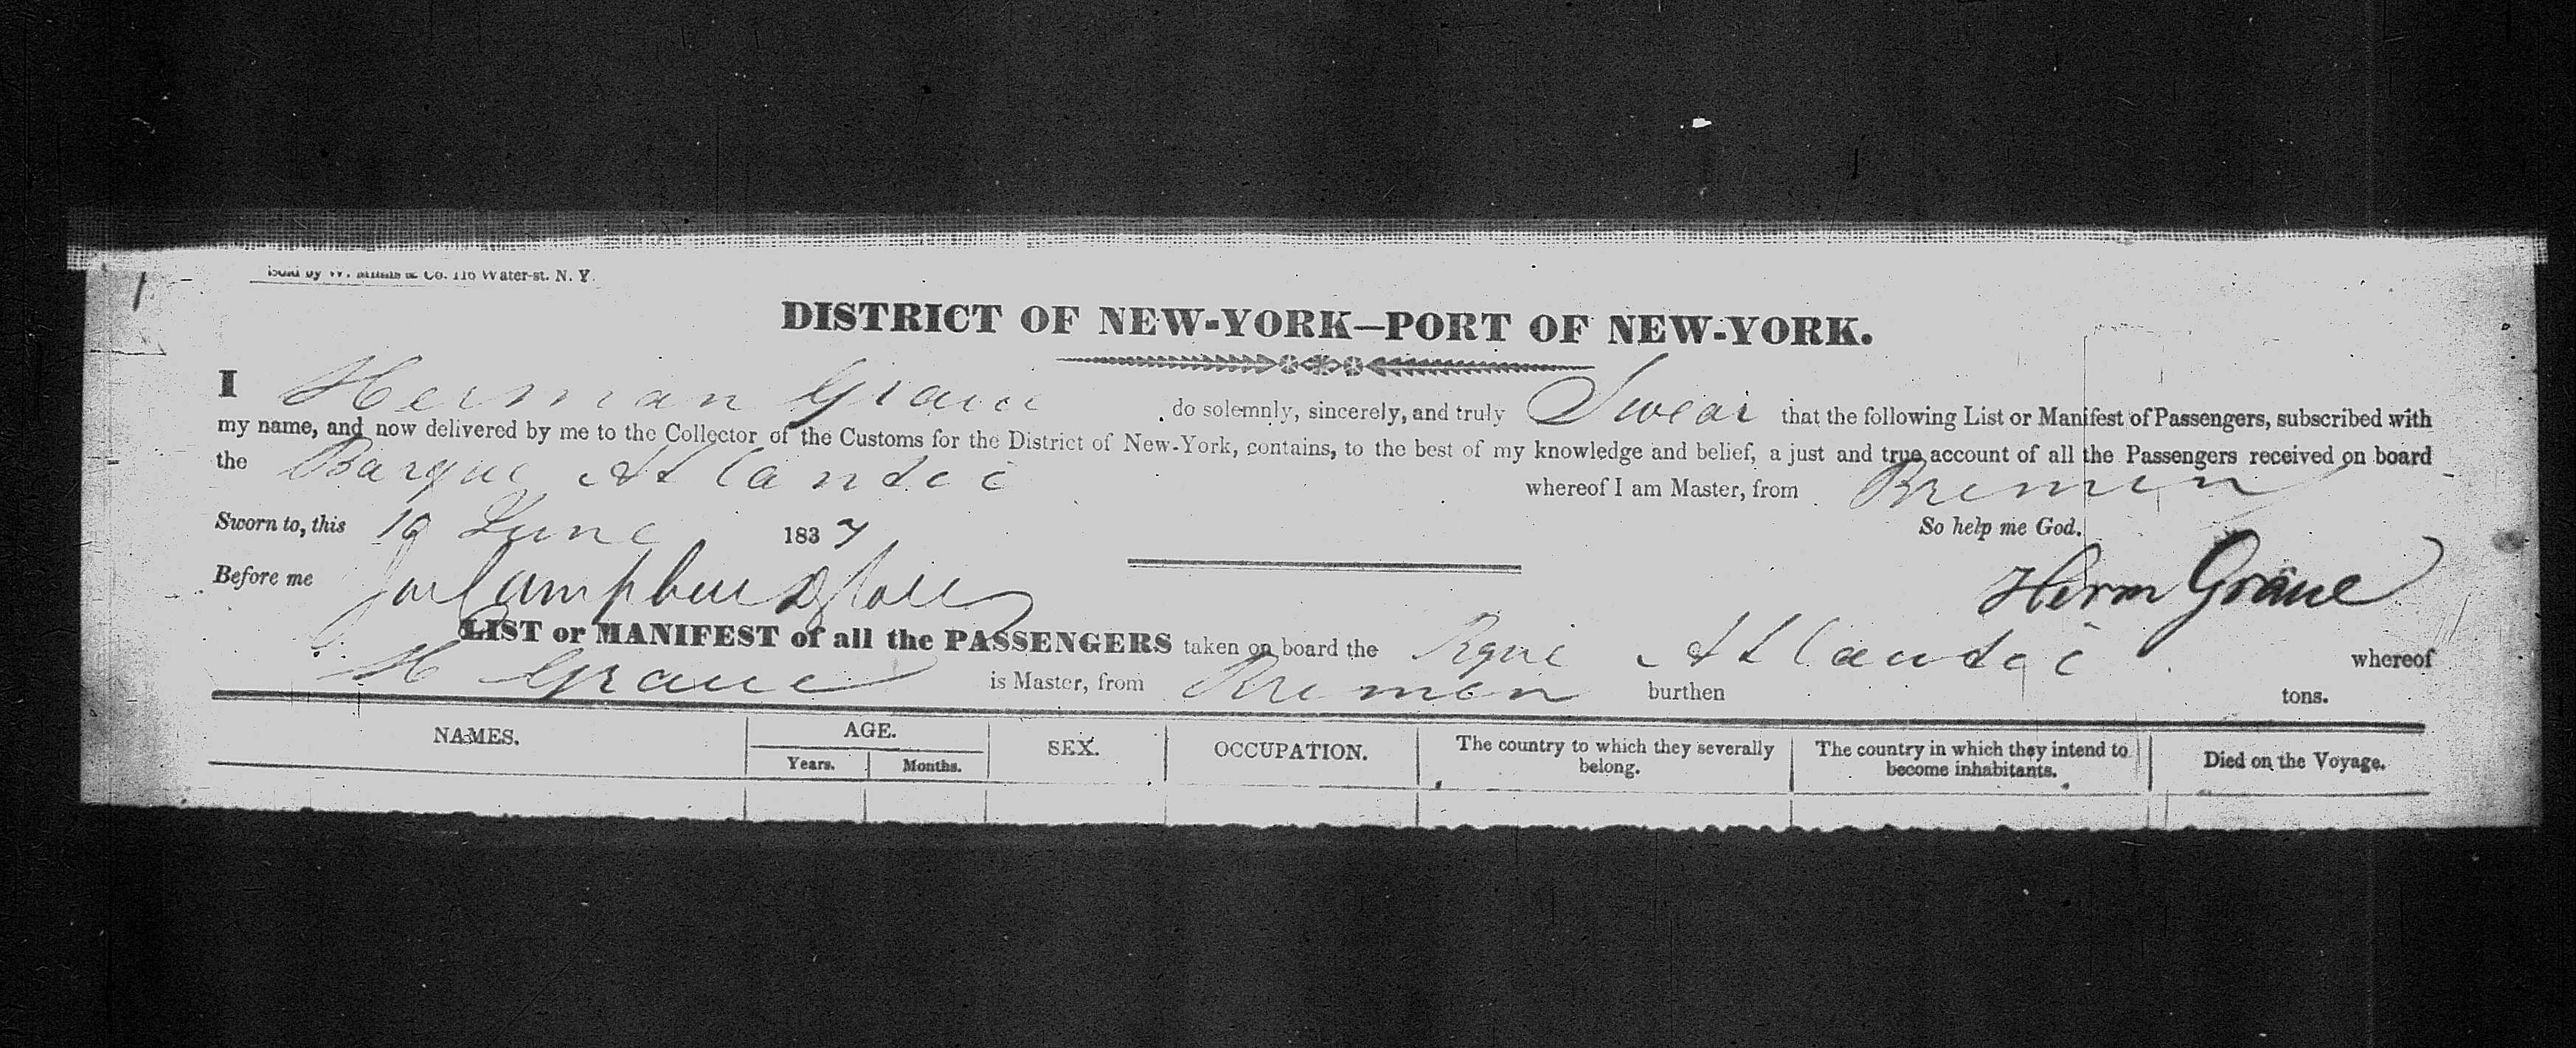 Sold by W. & Co. 116 Water-st. N. Y.
DISTRICT OF NEW-YORK—PORT OF NEW-YORK.
I Herman Graue do solemnly, sincerely, and truly Swear that the following List or Manifest of Passengers, subscribed with
my name, and now delivered by me to the Collector of the Customs for the District of New-York, contains, to the best of my knowledge and belief, a just and true account of all the Passengers received on board
the Barque Atlantic whereof I am Master, from Bremen
Sworn to, this 19 June 1837 So help me God.
Before me Campbell Herm Gräue
LIST or MANIFEST of all the PASSENGERS taken on board the Bque Atlantic whereof
H Graue is Master, from Bremen burthen tons.
NAMES. AGE. SEX. OCCUPATION. The country to which they severally belong. The country in which they intend to become inhabitants. Died on the Voyage.
Years. Months.